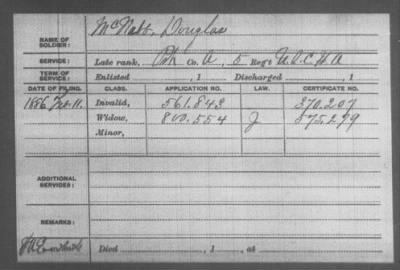 NAME OF SOLDIER: McNatt, Douglas
SERVICE: Late rank, Pvt Co. A, 5 Reg't U.S.C.H.A
TERM OF SERVICE: Enlisted , 1 Discharged , 1
DATE OF FILING. CLASS. APPLICATION NO. LAW. CERTIFICATE NO.
1886 Feb. 11. Invalid, 561.843 370.207
Widow, 800.554 J 575.279
Minor,
ADDITIONAL SERVICES:
REMARKS:
Died , 1 , at